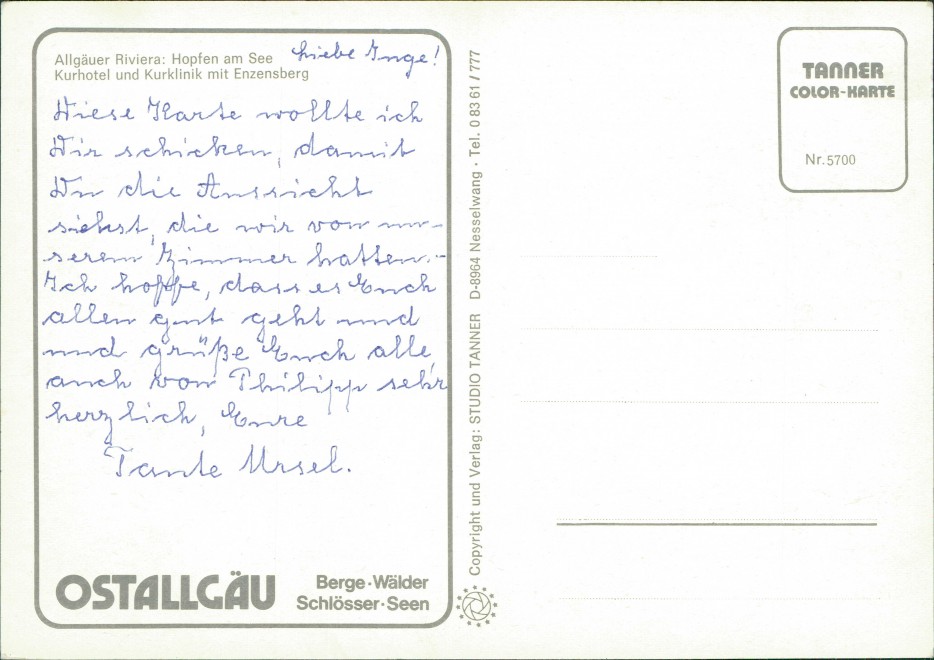 Allgäuer Riviera: Hopfen am See
Kurhotel und Kurklinik mit Enzensberg
Liebe Inge!
Diese Karte wollte ich
Dir schicken, damit
Du die Aussicht
siehst, die wir von un-
serem Zimmer hatten.-
Ich hoffe, dass es Euch
allen gut geht und
und grüße Euch alle,
auch von Philipp sehr
herzlich, Eure
Tante Ursel.
OSTALLGÄU
Berge·Wälder
Schlösser·Seen
Copyright und Verlag: STUDIO TANNER D-8964 Nesselwang · Tel. 0 83 61 / 777
TANNER
COLOR-KARTE
Nr. 5700